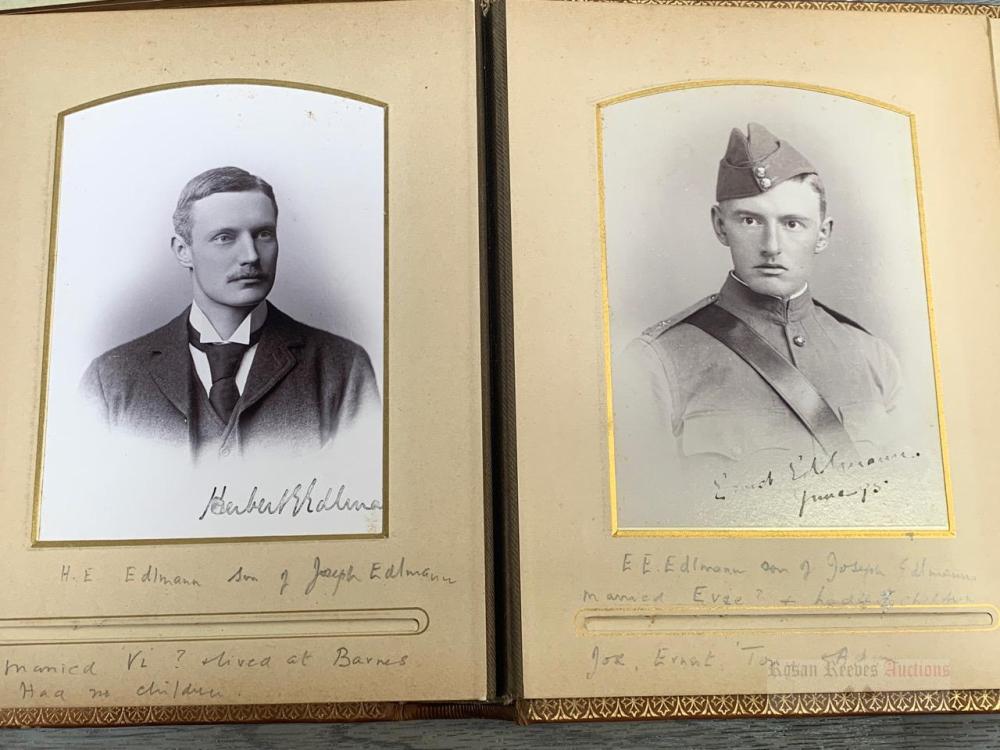 Herbert E Edlma
H.E Edlmann son of Joseph Edlmann
married Vi ? + lived at Barnes
Had no children.
Ernest Edlmann.
June 95
E E. Edlmann son of Joseph Edlmann
married Evie ? + had children
Joe, Ernest, Tom,
Rosan Reeves Auctions